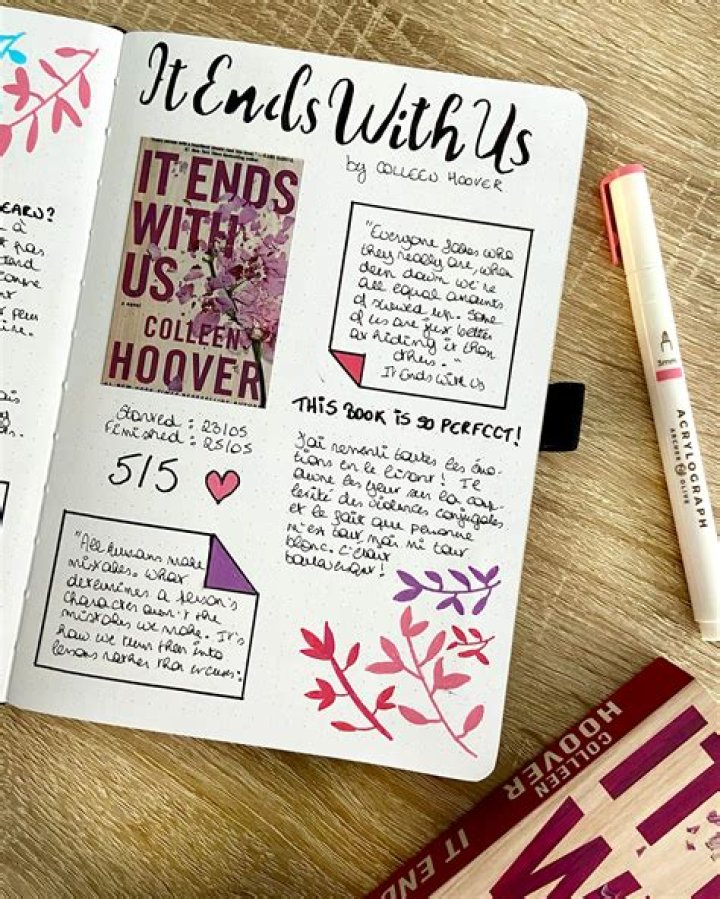 EARN?
à
pas
It Ends With Us
by COLLEEN HOOVER
IT ENDS
WITH
US
a novel
COLLEEN
HOOVER
"Everyone fakes who
they really are, when
deep down we're
all equal amounts
of screwed up. Some
of us are just better
at hiding it than
others."
It Ends With Us
Started : 23/05
Finished : 25/05
5/5
THIS BOOK IS SO PERFECT!
J'ai ressenti toutes les émo-
tions en le lisant! Il
ouvre les yeux sur la com-
plexité des violences conjugales
et le fait que personne
n'est tout noir ni tout
blanc. C'était
bouleversant!
"All humans make
mistakes. What
determines a person's
character aren't the
mistakes we make. It's
how we turn them into
lessons rather than excuses.
3mm
ACRYLOGRAPH
ARCHER & OLIVE
COLLEEN
HOOVER
IT END
IT
W